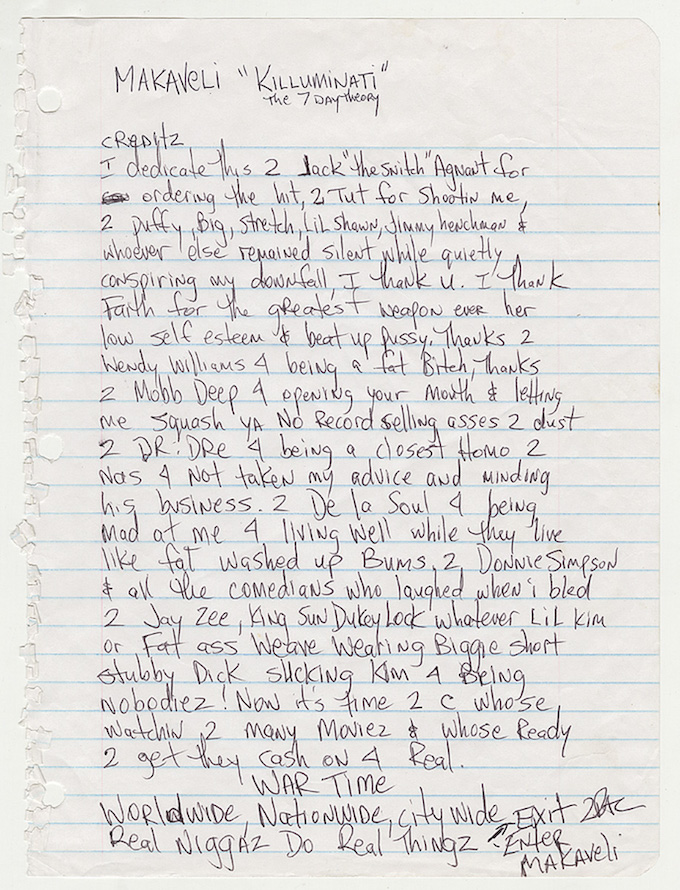 MAKAVELI "KILLUMINATI"
The 7 Day Theory
CREDITZ
I dedicate this 2 Jack "the snitch" Agnant for
ordering the hit, 2 Tut for shootin me,
2 puffy, Big, Stretch, LiL Shawn, Jimmy henchman &
whoever else remained silent while quietly
conspiring my downfall, I thank u. I thank
Faith for the greatest weapon ever her
low self esteem & beat up pussy. Thanks 2
Wendy Williams 4 being a fat Bitch, Thanks
2 Mobb Deep 4 opening your mouth & letting
me squash ya No Record selling asses 2 dust
2 DR. DRE 4 being a closest Homo 2
Nas 4 Not taken my advice and minding
his business. 2 De la Soul 4 being
mad at me 4 living well while they live
like fat washed up Bums, 2 Donnie Simpson
& all the comedians who laughed when i bled
2 Jay Zee, King Sun Dukey Lock whatever LiL Kim
or Fat ass Weave Wearing Biggie short
stubby Dick sucking Kim 4 Being
nobodiez! Now it's time 2 c whose
watchin 2 many Moviez & whose Ready
2 get they cash on 4 Real.
WAR TIME
WORLDWIDE, NATIONWIDE, city wide EXIT 2PAC
Real Niggaz Do Real Thingz ENTER
MAKAVELI